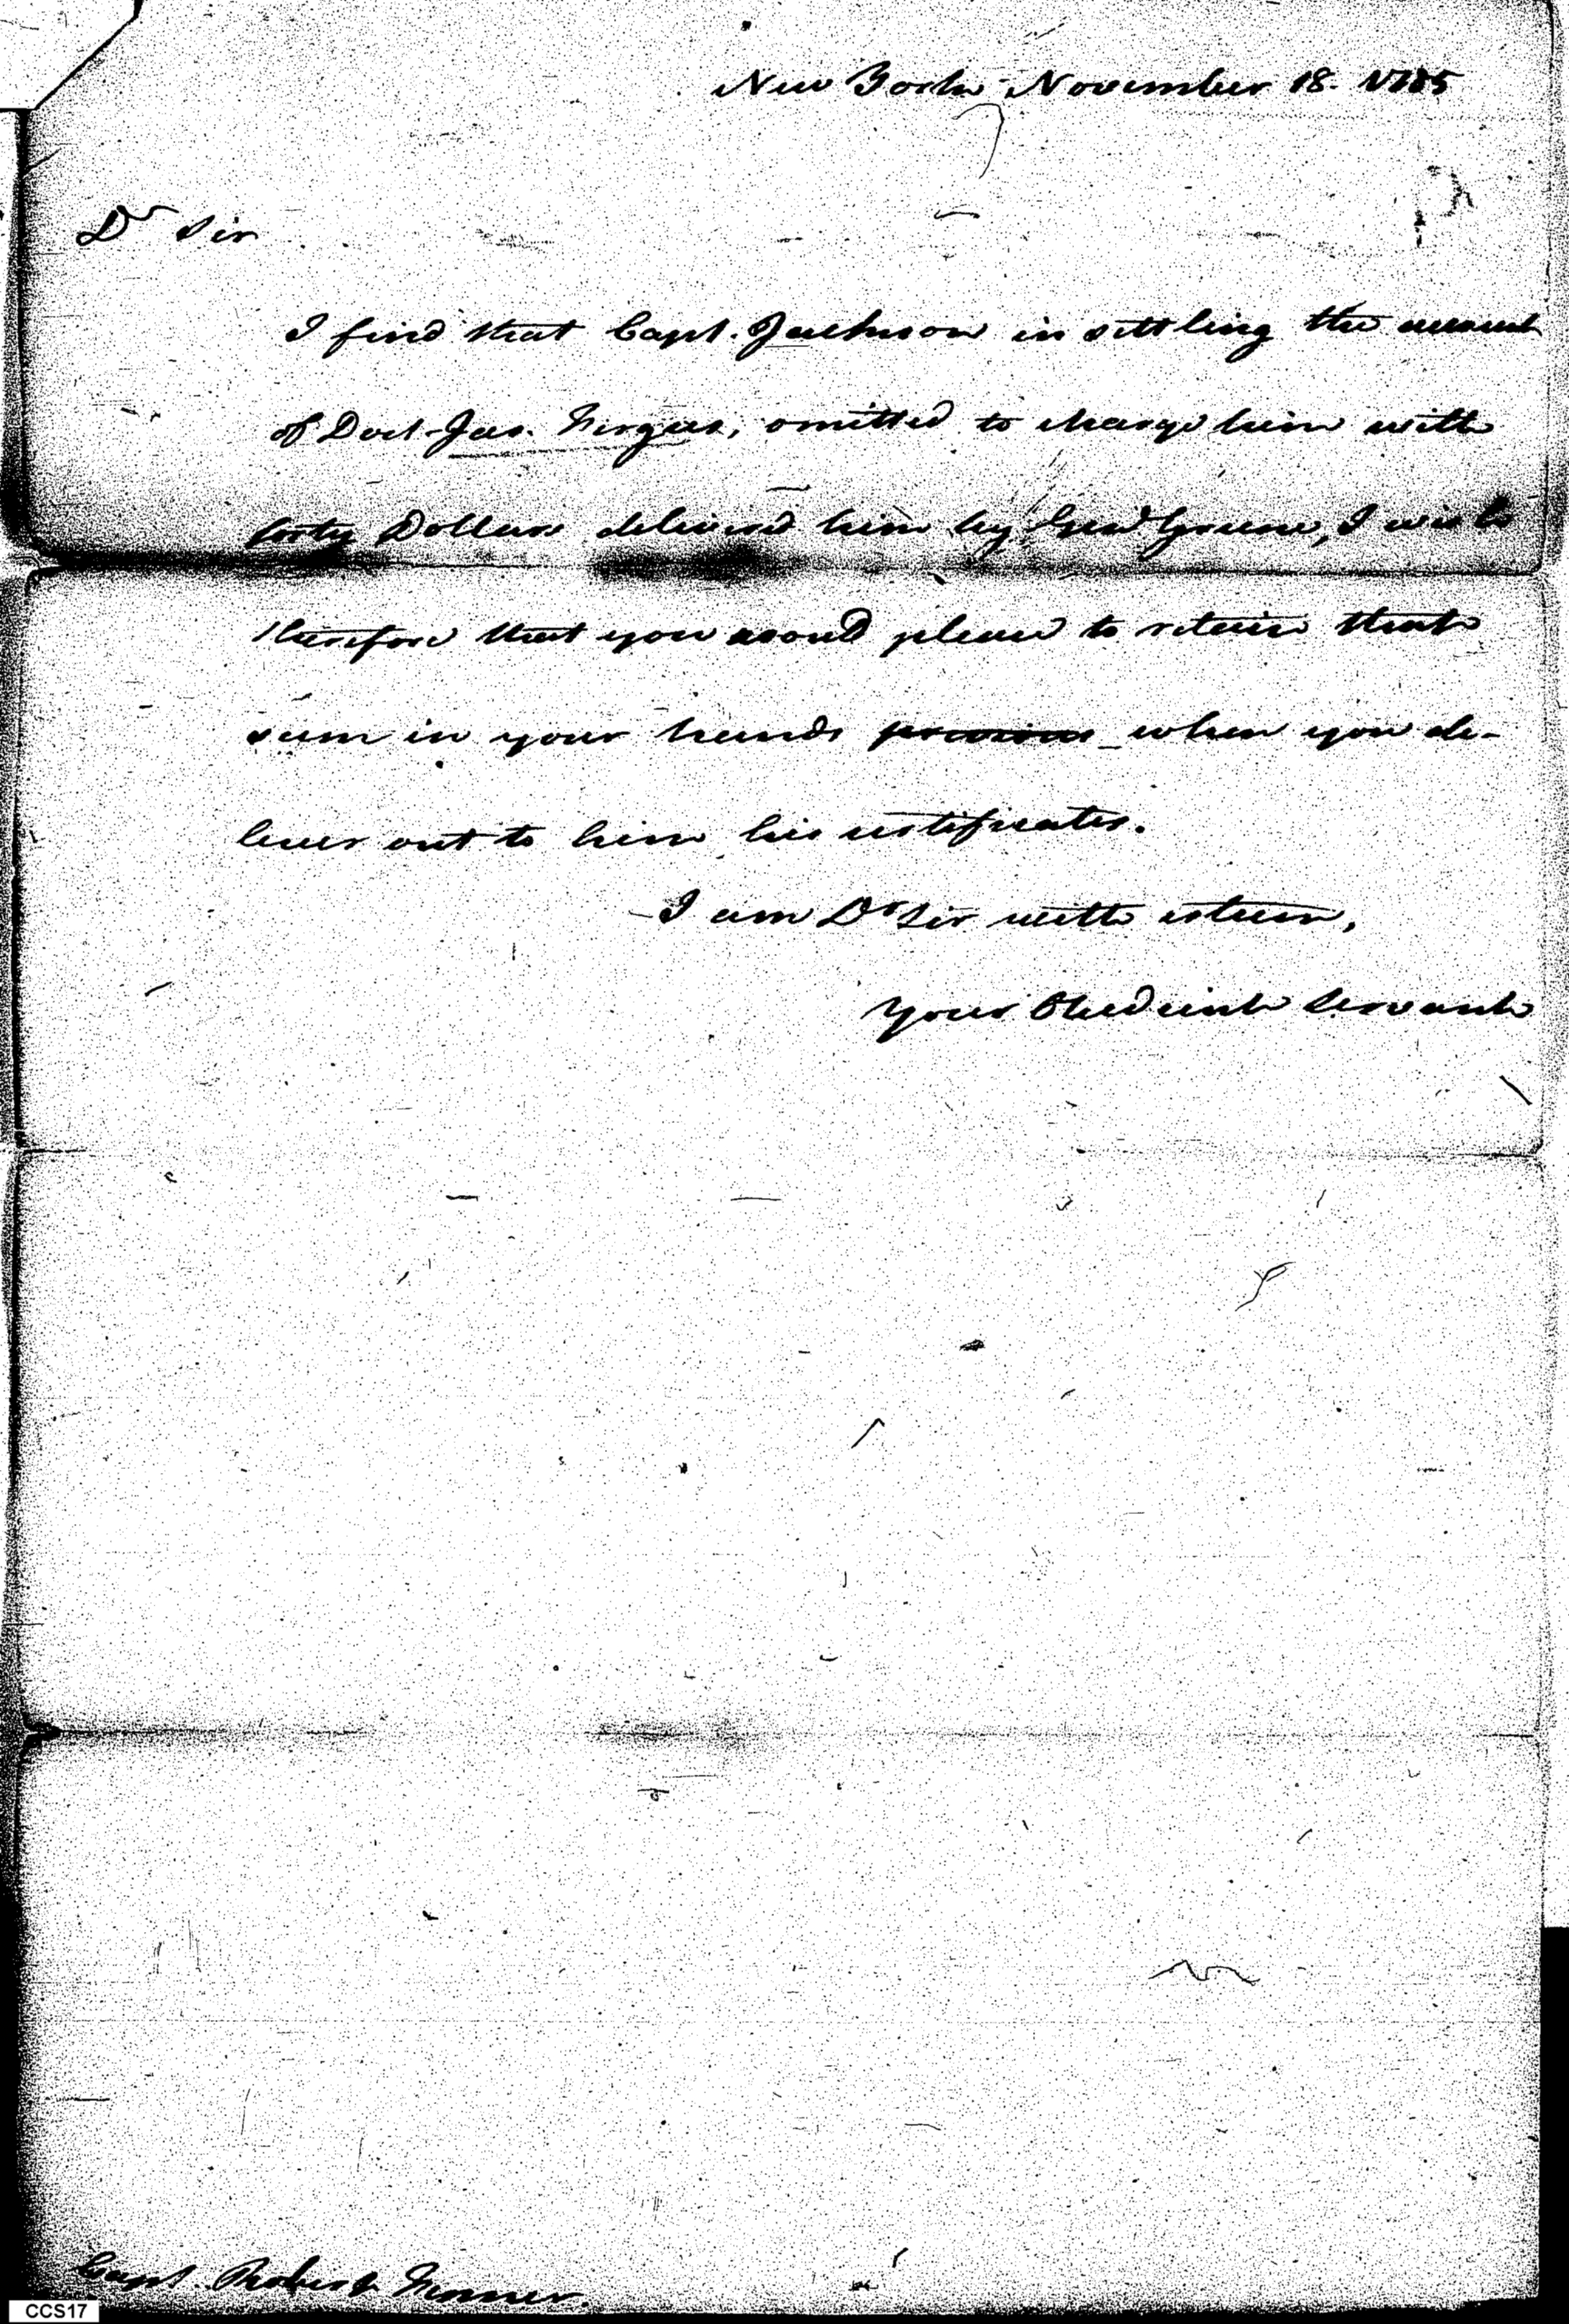 New York November 18. 1785
Dr Sir
I find that Capt. Jackson in settling the account
of Doct. Jas. Fergus, omitted to charge him with
forty Dollars delivered him by Genl Greene, I wish
therefore that you would please to retain that
sum in your hands previous when you de-
liver out to him his certificates.
I am Dr Sir with esteem,
Your Obedient Servant
Capt. Robert Fenner.
CCS17